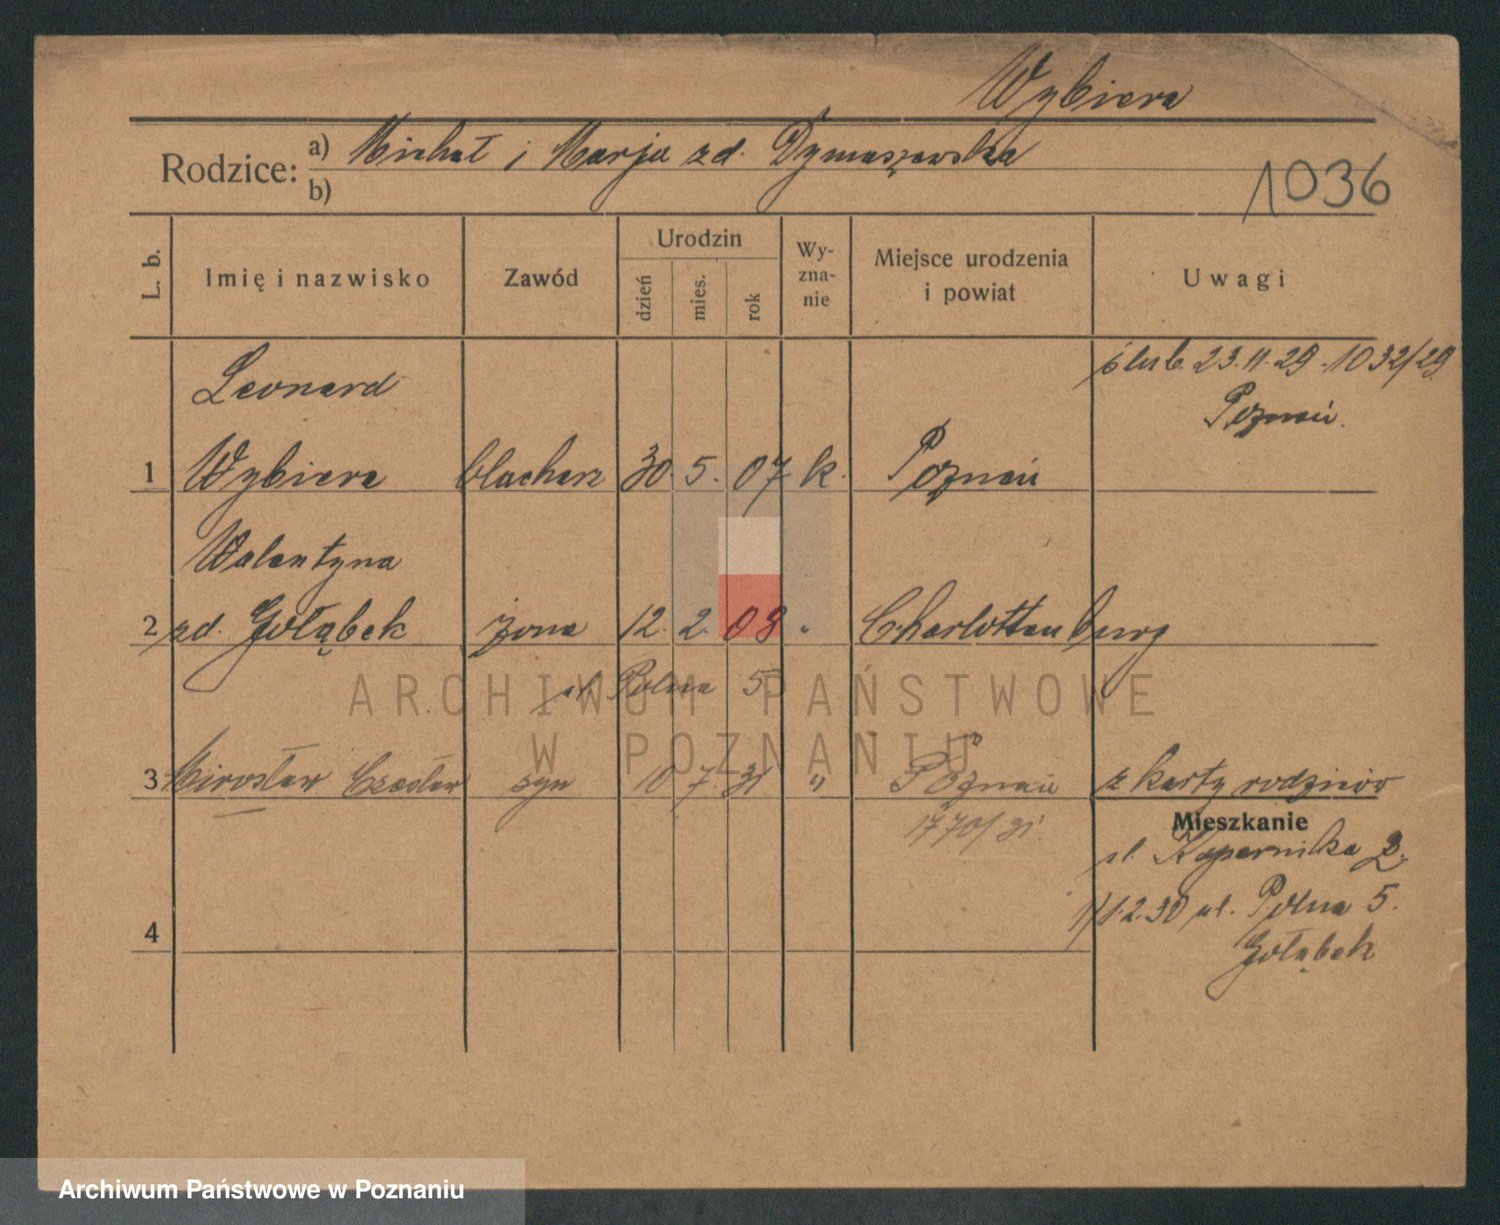 Wybiera
Rodzice: a) Michał i Marja zd. Dymaszewska
b)
1036
L. b.
Imię i nazwisko
Zawód
Urodzin
dzień
mies.
rok
Wy-
zna-
nie
Miejsce urodzenia
i powiat
Uwagi
ślub. 23.11.29 - 1032/29
Poznań.
Leonard
1 Wybiera blacharz 30. 5. 07 k. Poznań
Walentyna
2 zd. Gołąbek żona 12. 2. 08 " Charlottenburg
ul. Polna 5
3 Mirosław Czesław syn 10 7. 31 " Poznań z karty rodziców
1770/31.
Mieszkanie
ul. Kopernika 2.
1/12.30 ul. Polna 5.
Gołąbek
4
ARCHIWUM PAŃSTWOWE
W POZNANIU
Archiwum Państwowe w Poznaniu